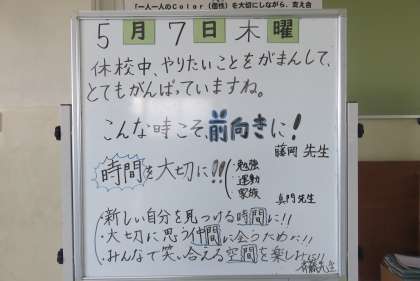 「一人一人のColor(個性)を大切にしながら、支え合
5月7日木曜
休校中、やりたいことをがまんして、
とてもがんばっていますね。
こんな時こそ、前向きに!
藤岡先生
時間を大切に!!
・勉強
・運動
・家族
真門先生
・新しい自分を見つける時間に!!
・大切に思う仲間に会うために!!
・みんなで笑い合える空間を楽しみに!!
斉藤先生